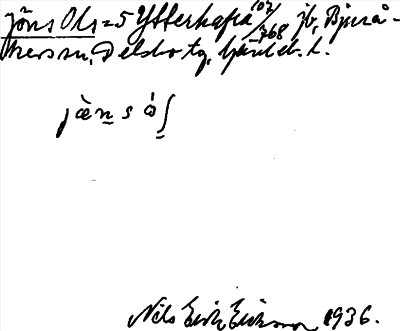 Jöns Ols=5 Ytterhafra 102/768 jb, Bjurå-
kers sn, Delsbo tg, Gävleb. l.
jæ̀n s ó ʃ
Nils Erik Eriksson 1936.